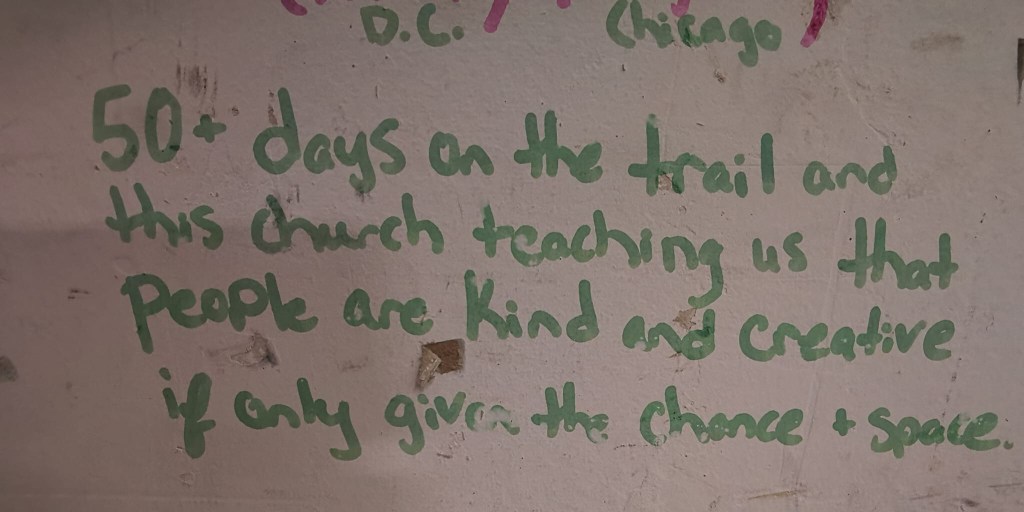 D.C. Chicago
50+ days on the trail and
this church teaching us that
people are kind and creative
if only given the chance + space.